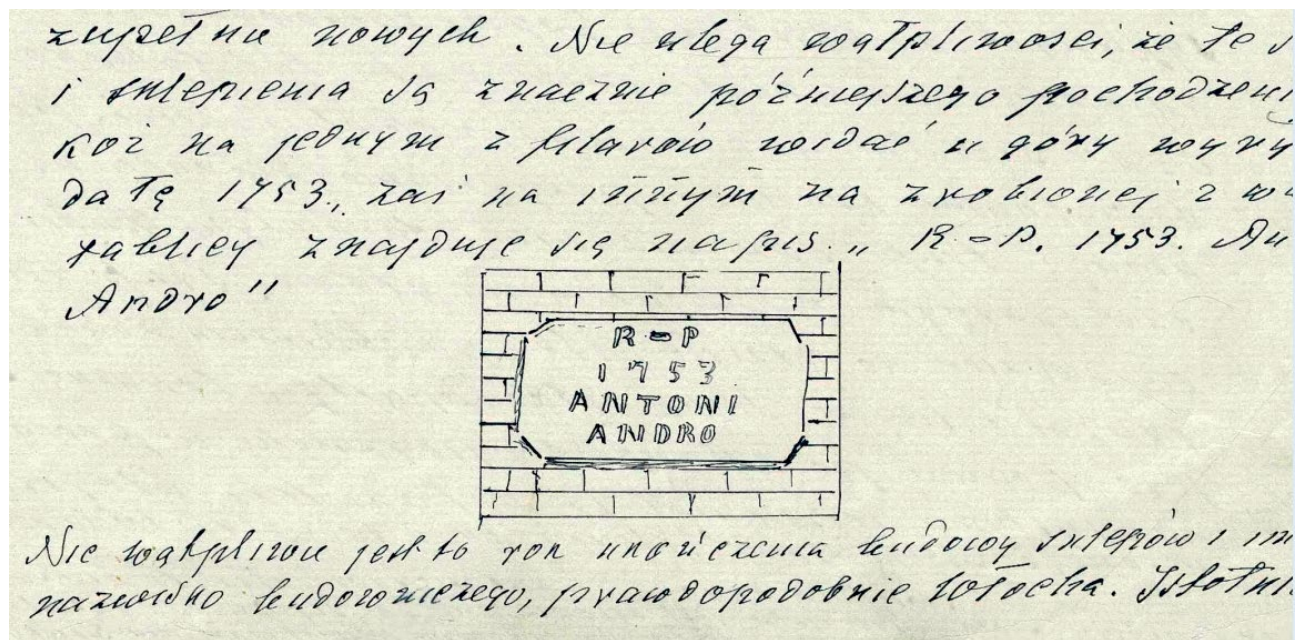 zupełnie nowych. Nie ulega wątpliwości, że te
i sklepienia są znacznie późniejszego pochodzeni
koż na jednym z filarów widać u góry wyry
datę 1753., zaś na innym na zrobionej z
tablicy znajduje się napis „R = P. 1753. An
Andro"
R = P
1753
ANTONI
ANDRO
Nie wątpliwie jest to rok ukończenia budowy sklepów i im
nazwisko budowniczego, prawdopodobnie Włocha. Istotni